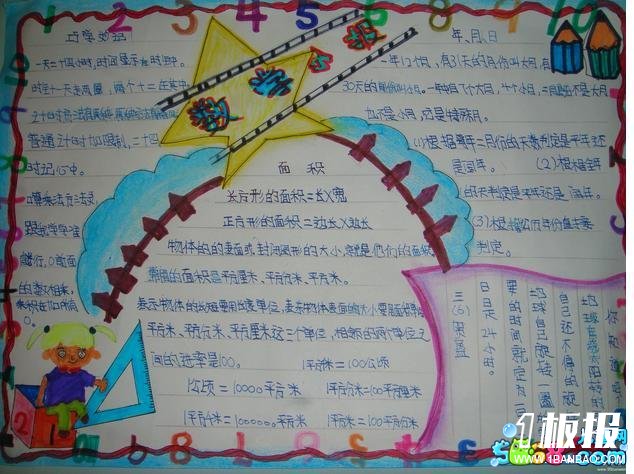 数学小报
巧学妙记
一天二十四小时,时间显示有时
时针一天走两圈,两个十二在其中
普通计时加限制,二十四
时记心中。
年、月、日
一年12个月,有31天的月份叫大月,有
30天的月份叫小月,一种有7个大月,4个小月,二月既不是大月
也不是小月,还是特殊月。
(1)根据
二月份的天数判定是平年还
是闰年。(2)根据全年
的天数判定是平年还是闰年。
(3)根据公历年份
判定。
面积
长方形的面积=长X宽
正方形的面积=边长X边长
物体的的表面或封闭图形的大小,就是他们的面积
常用的面积是平方厘米、平方分米、平方米。
表示物体的长短要用长度单位,表示物体表面的大小要用面积单位
平方米、平方分米、平方厘米这三个单位,相邻的两个单位之
间的进率是100。
1平方千米=100公顷
1公顷=10000平方米
1平方分米=100平方厘米
1平方千米=1000000平方米
1平方米=100平方分米
你知道吗
地球在绕太阳转的
自己还不停的旋
地球自己旋转一圈
要的时间就定为一
日。一日是24小时。
三(6)
1板报
WWW.1BANBAO.COM